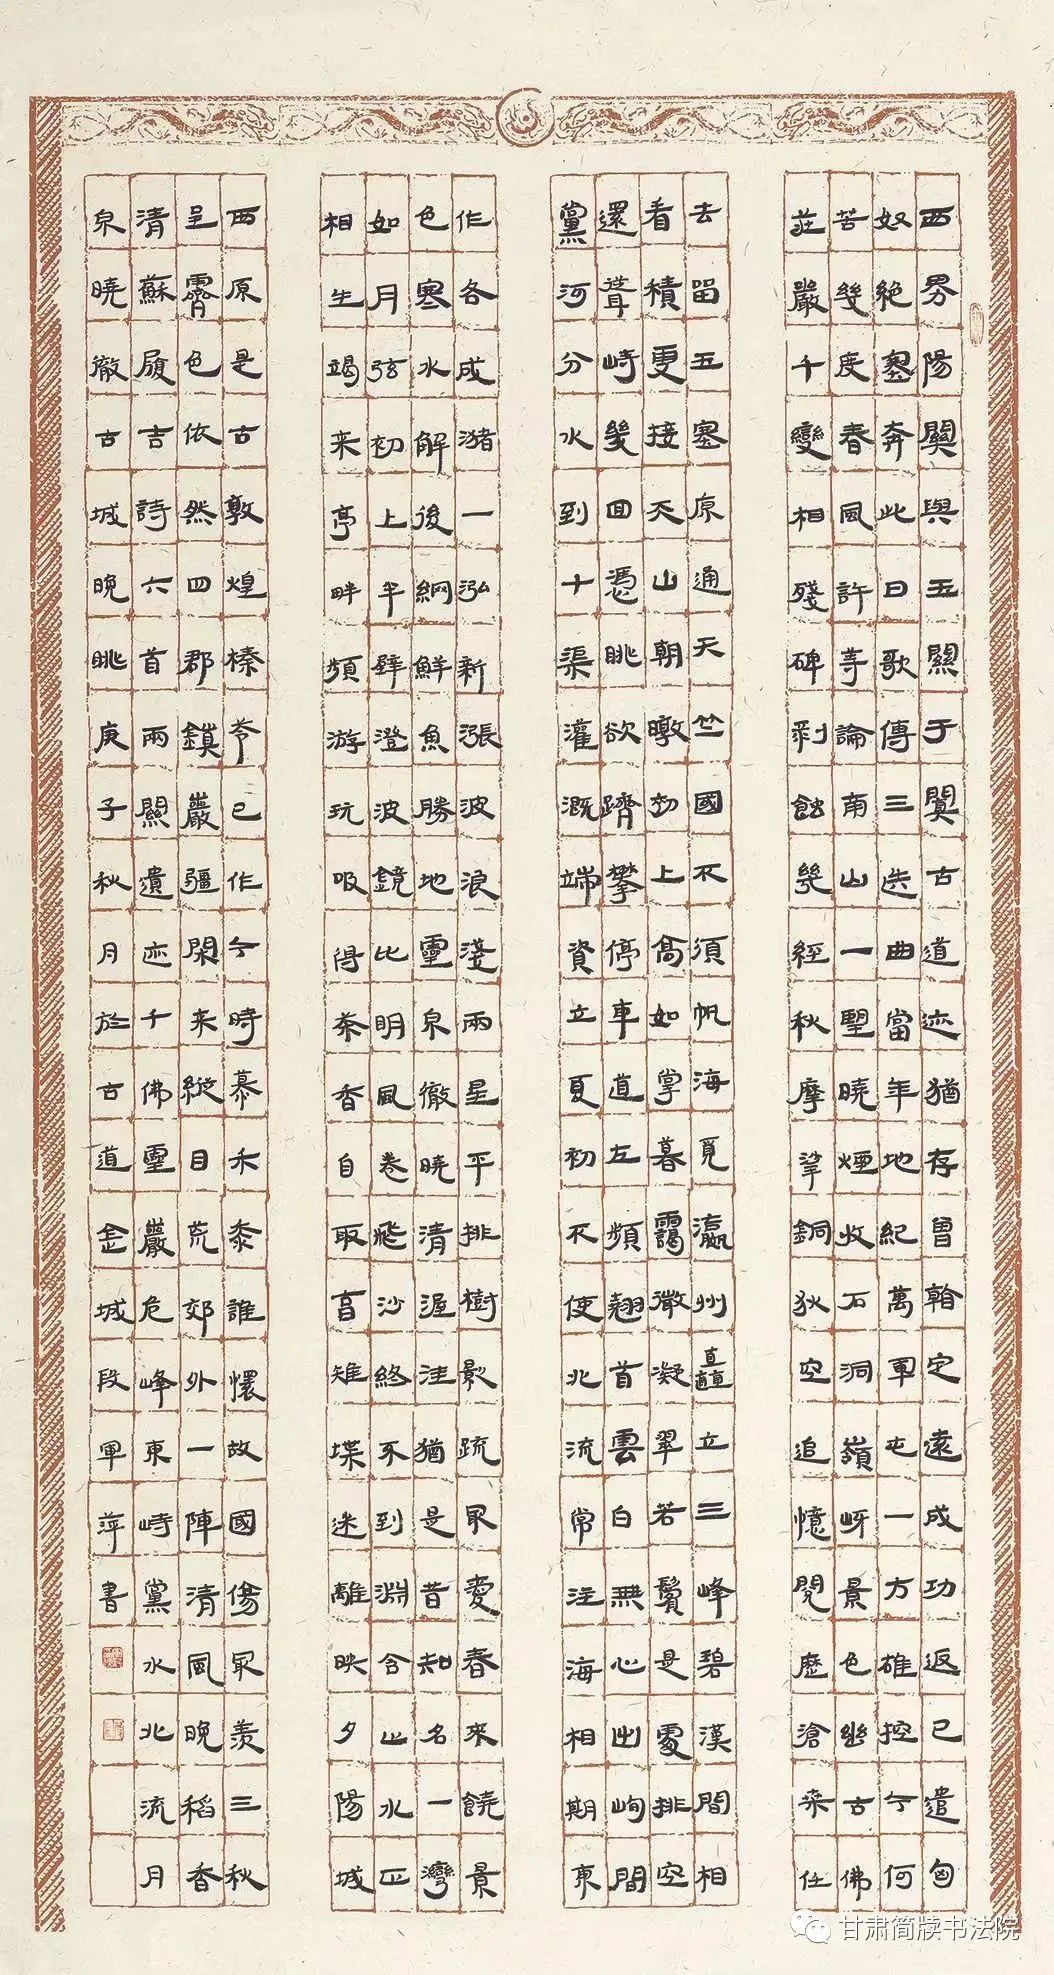 西界陽關與玉關于闐古道迹猶存曾翰定遠成功返已遣匈
奴絕塞奔此日歌傳三迭曲當年地紀萬軍屯一方雄控今何
苦幾度春風許等論南山一塹曉煙收石洞嶺岈景色幽古佛
莊嚴千變相殘碑剥蝕幾經秋摩挲銅狄空追憶閱歷滄桑任
去留五塞原通天竺國不須帆海覓瀛州直矗立三峰碧漢間相
看積更接天山朝暾初上高如掌暮靄微凝翠若鬟是處排空
還聳峙幾回憑眺欲躋攀停車道左頻翹首雲白無心出岫間
黨河分水到十渠灌溉端資立夏初不使北流常注海相期東
作各成瀦一泓新漲波浪淺兩星平排樹影疏最愛春來饒景
色寒水解後網鮮魚勝地靈泉徹曉清渥洼猶是昔知名一灣
如月弦初上半壁澄波鏡比明風卷飛沙終不到淵含止水正
相生竭来亭畔頻游玩吸得茶香自取烹雉堞迷離映夕陽城
西原是古敦煌榛苓已作今時慕禾黍誰懷故國傷最羨三秋
呈霽色依然四郡鎮巖疆閑来縱目荒郊外一陣清風晚稻香
清蘇履吉詩六首兩關遺迹千佛靈巖危峰東峙黨水北流月
泉曉徹古城晚眺庚子秋月於古道金城段軍萍書
甘肃简牍书法院